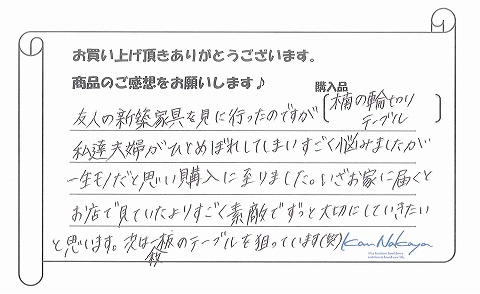 お買い上げ頂きありがとうございます。
商品のご感想をお願いします♪
購入品
楠の輪切り
テーブル
友人の新築家具を見に行ったのですが
私達夫婦がひとめぼれしてしまいすごく悩みましたが
一生モノだと思い購入に至りました。いざお家に届くと
お店で見ていたよりすごく素敵でずっと大切にしていきたい
と思います。次は一枚板のテーブルを狙っています(笑)
Kan Nakaya